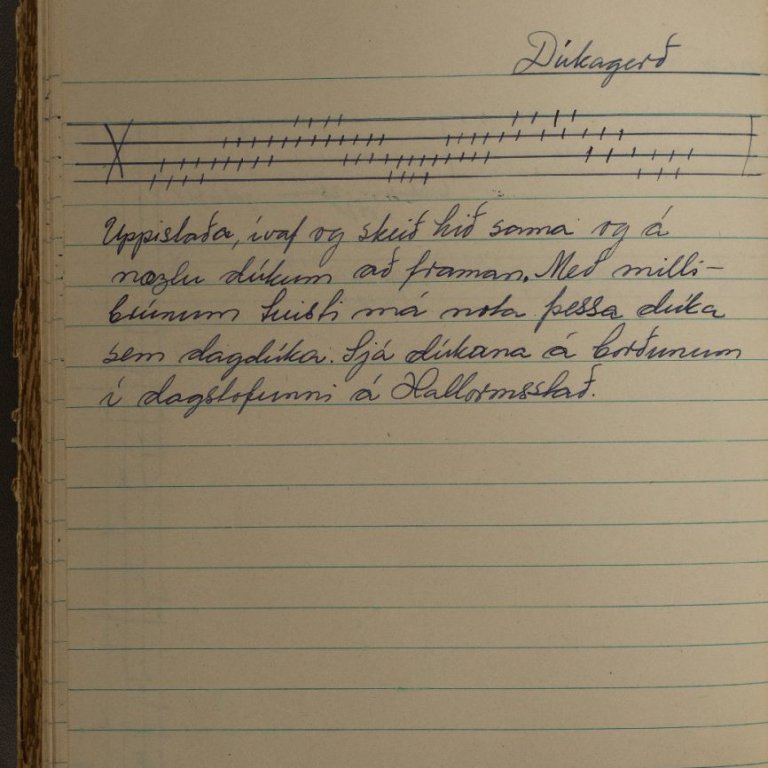 Dúkagerð
Uppistaða, ívaf og skeið hið sama og á
næstu dúkum að framan. Með milli-
brúnum tvisti má nota þessa dúka
sem dagdúka. Sjá dúkana á borðunum
í dagstofunni á Hallormsstað.